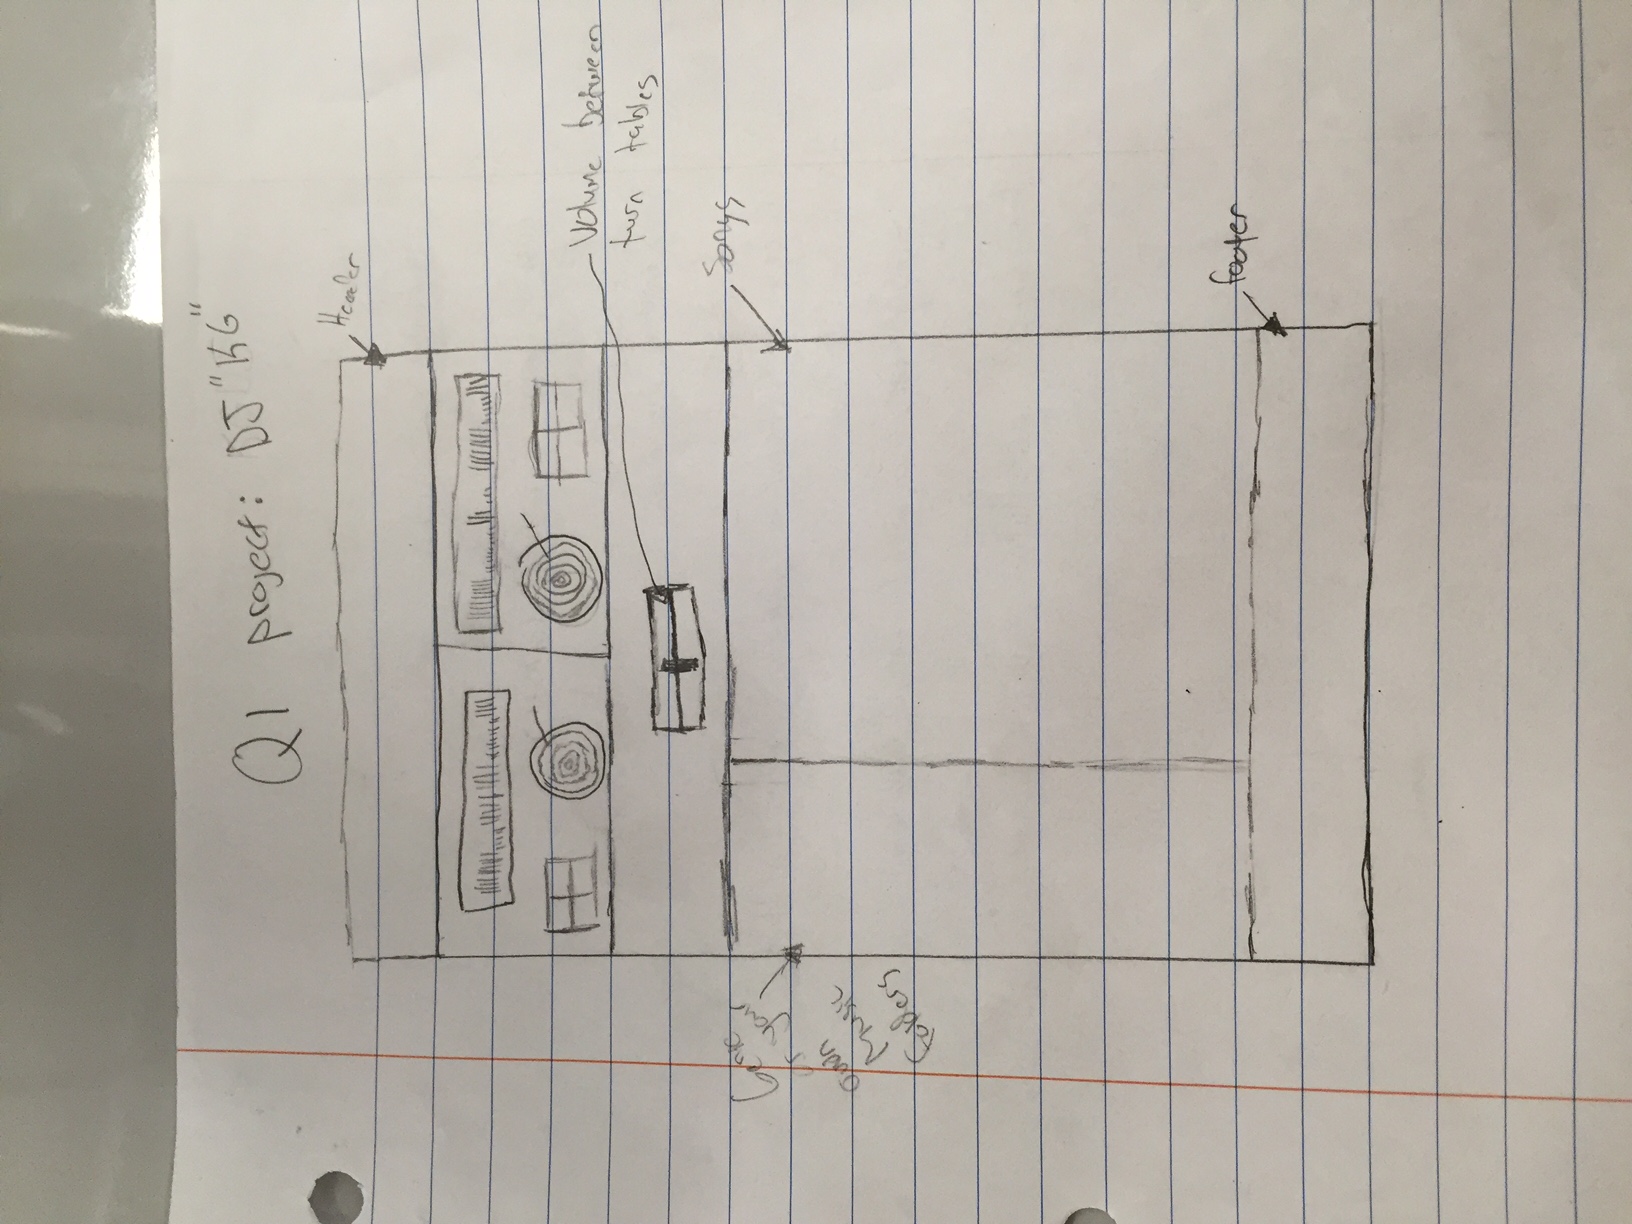 Q1 project: DJ "KG"
Header
Volume between
turn tables
Songs
or your
own
Music
folders
footer